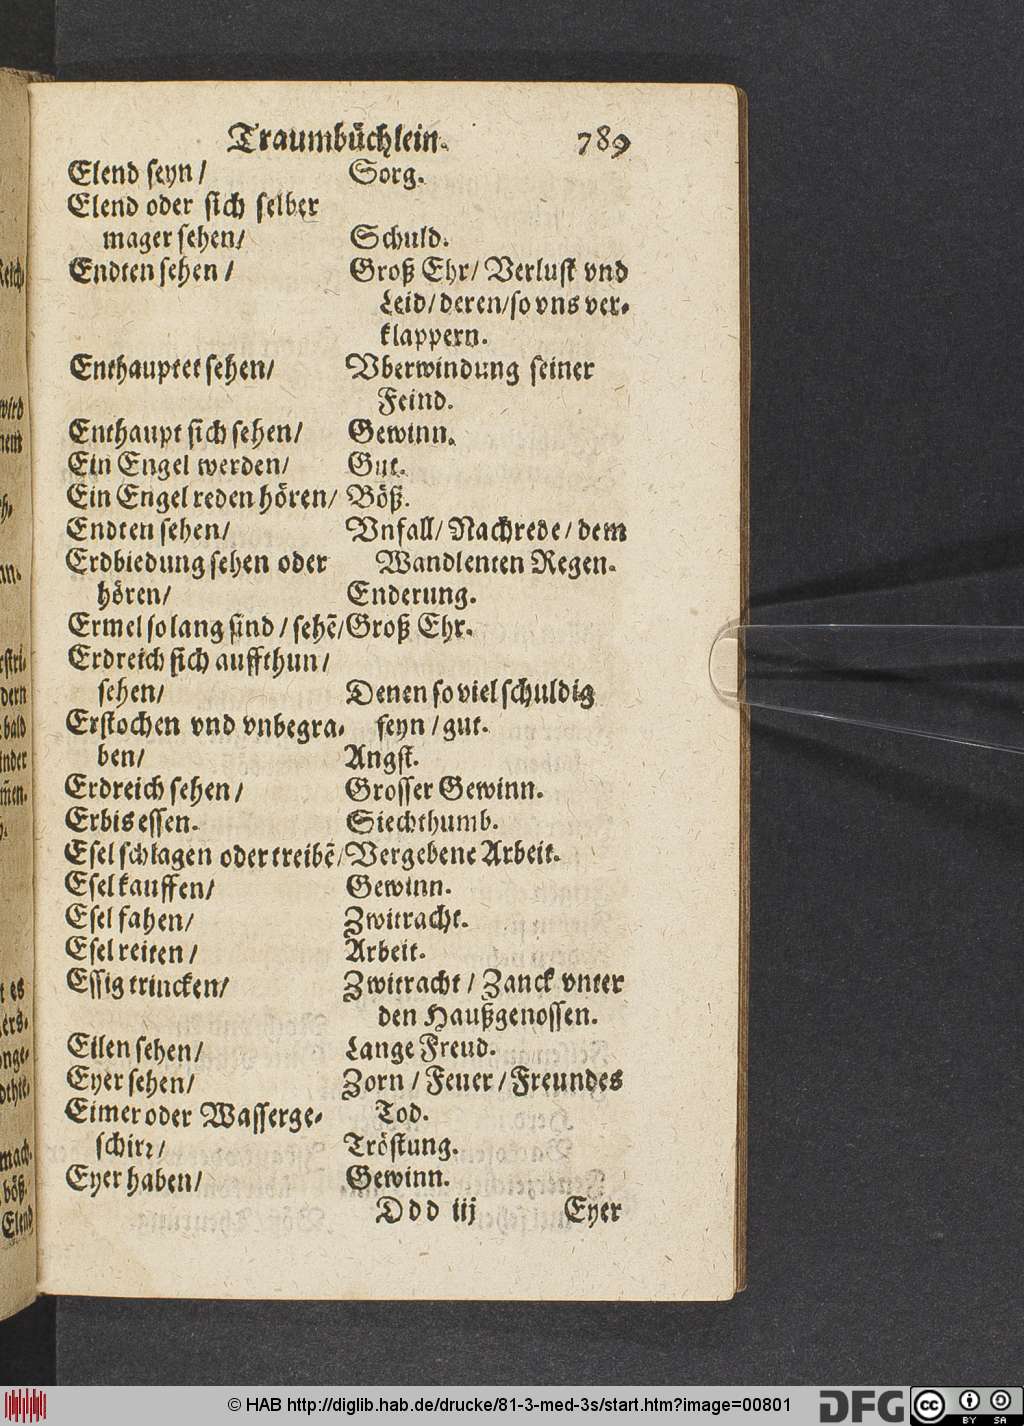 Traumbüchlein. 789
Elend seyn / Sorg.
Elend oder sich selber
mager sehen / Schuld.
Endten sehen / Groß Ehr / Verlust vnd
Leid / deren / so vns ver-
klappern.
Enthauptet sehen / Vberwindung seiner
Feind.
Enthaupt sich sehen / Gewinn.
Ein Engel werden / Gut.
Ein Engel reden hören / Böß.
Endten sehen / Vnfall / Nachrede / dem
Erdbiedung sehen oder Wandlenten Regen.
hören / Enderung.
Ermel so lang sind / sehẽ / Groß Ehr.
Erdreich sich auffthun /
sehen / Denen so viel schuldig
Erstochen vnd vnbegra- seyn / gut.
ben / Angst.
Erdreich sehen / Grosser Gewinn.
Erbis essen. Siechthumb.
Esel schlagen oder treibẽ / Vergebene Arbeit.
Esel kauffen / Gewinn.
Esel fahen / Zwitracht.
Esel reiten / Arbeit.
Essig trincken / Zwitracht / Zanck vnter
den Haußgenossen.
Eilen sehen / Lange Freud.
Eyer sehen / Zorn / Feuer / Freundes
Eimer oder Wasserge- Tod.
schirr / Tröstung.
Eyer haben / Gewinn.
Ddd iij Eyer
wird
es
ers-
onge-
mach-
böß.
Elend
bald
inder
dern
© HAB http://diglib.hab.de/drucke/81-3-med-3s/start.htm?image=00801
DFG
cc BY SA